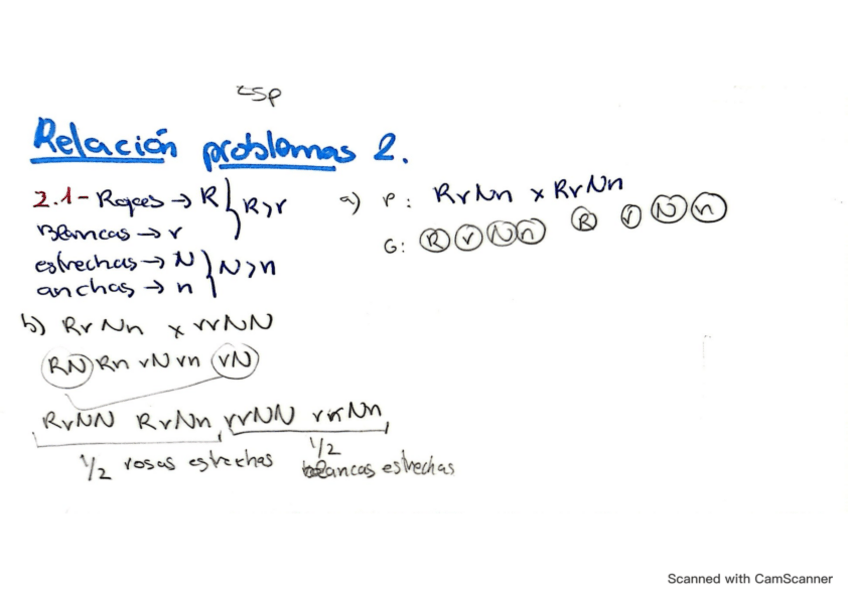 Esp
Relación problemas 2.
2.1- Rojas → R } R>r
Blancas → r
estrechas → N } N>n
anchas → n
a) P: RrNn x RrNn
G: R r N n R r N n
b) RrNn x rrNN
RN Rn rN rn rN
RrNN RrNn rrNN rrNn
1/2 rosas estrechas 1/2 blancas estrechas
Scanned with CamScanner